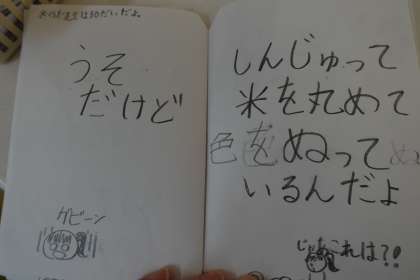 うそ
だけど
ガビーン
しんじゅって
米を丸めて
色をぬって
いるんだよ
じゃあこれは?!